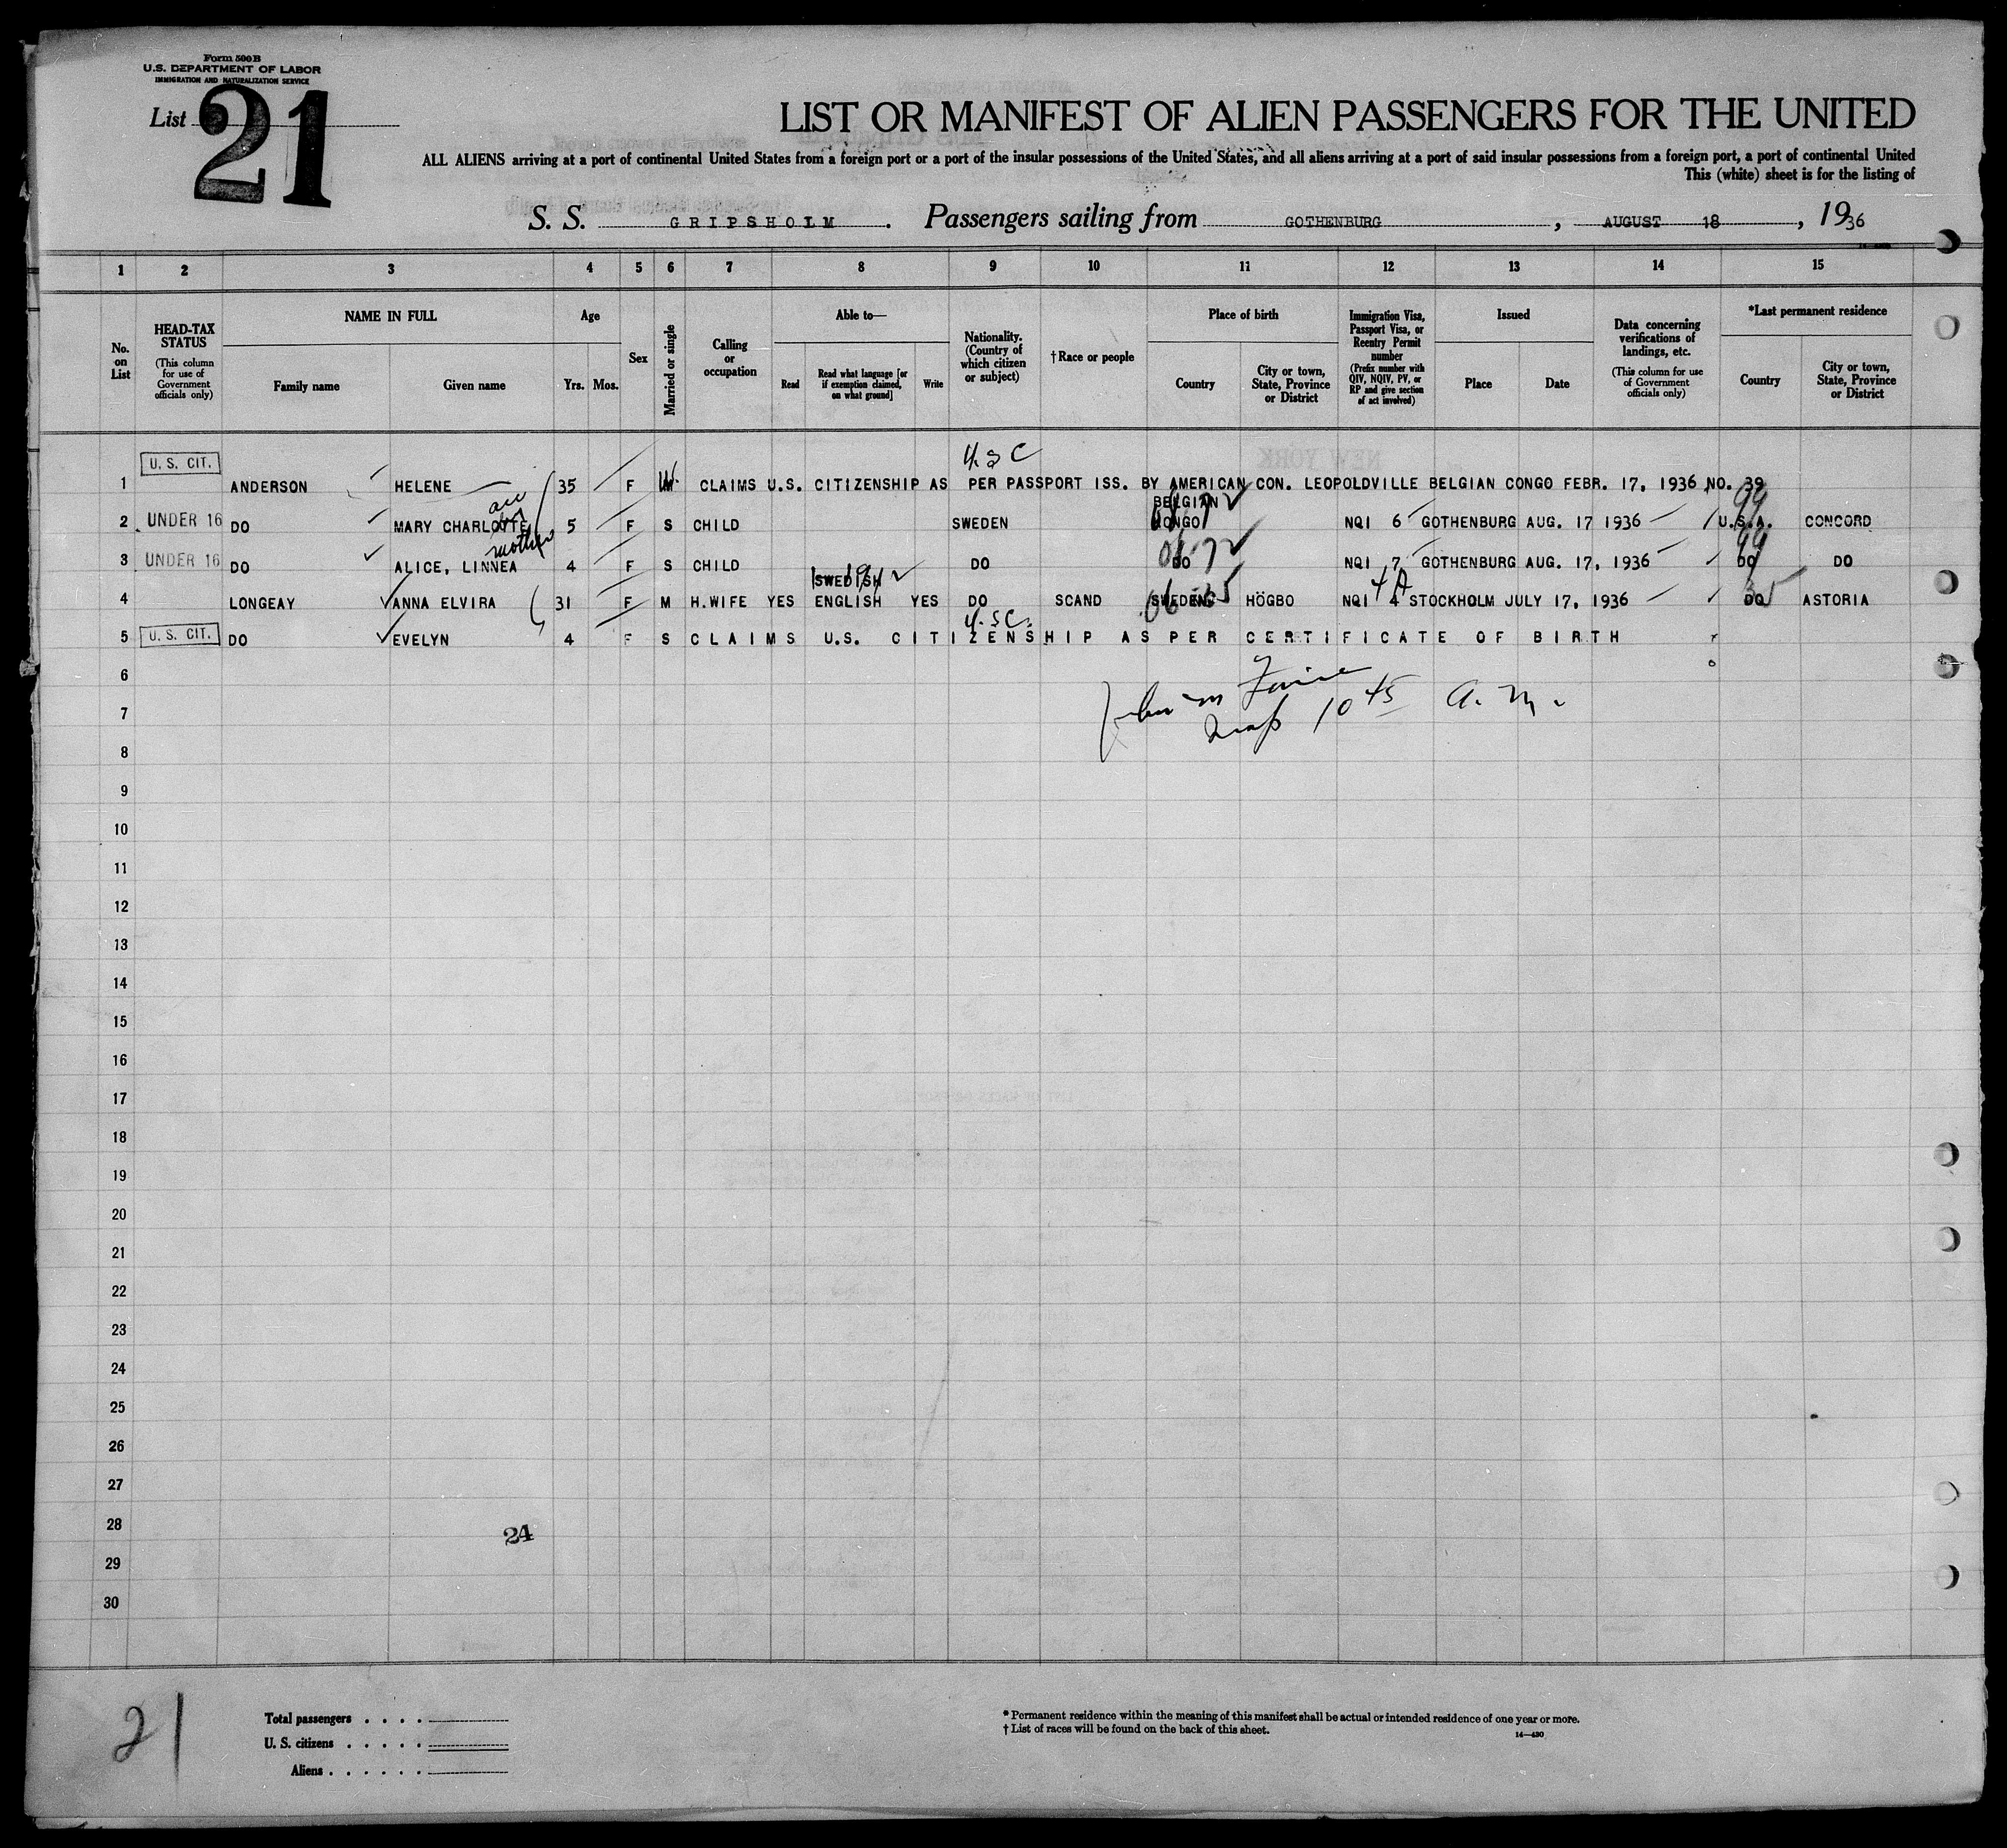 Form 500 B
U. S. DEPARTMENT OF LABOR
IMMIGRATION AND NATURALIZATION SERVICE
List 21
LIST OR MANIFEST OF ALIEN PASSENGERS FOR THE UNITED
ALL ALIENS arriving at a port of continental United States from a foreign port or a port of the insular possessions of the United States, and all aliens arriving at a port of said insular possessions from a foreign port, a port of continental United
This (white) sheet is for the listing of
S. S. GRIPSHOLM. Passengers sailing from GOTHENBURG, AUGUST 18, 1936
1 2 3 4 5 6 7 8 9 10 11 12 13 14 15
No. on List
HEAD-TAX STATUS (This column for use of Government officials only)
NAME IN FULL
Family name Given name
Age
Yrs. Mos.
Sex
Married or single
Calling or occupation
Able to—
Read Read what language [or if exemption claimed, on what ground] Write
Nationality. (Country of which citizen or subject)
†Race or people
Place of birth
Country City or town, State, Province or District
Immigration Visa, Passport Visa, or Reentry Permit number (Prefix number with QIV, NQIV, PV, or RP and give section of act involved)
Issued
Place Date
Data concerning verifications of landings, etc. (This column for use of Government officials only)
*Last permanent residence
Country City or town, State, Province or District
U. S. CIT. U.S.C
1 ANDERSON HELENE 35 F CLAIMS U.S. CITIZENSHIP AS PER PASSPORT ISS. BY AMERICAN CON. LEOPOLDVILLE BELGIAN CONGO FEBR. 17, 1936 NO. 39
BELGIAN
2 UNDER 16 DO MARY CHARLOTTE 5 F S CHILD SWEDEN CONGO NQI 6 GOTHENBURG AUG. 17 1936 U.S.A. CONCORD
mother
3 UNDER 16 DO ALICE, LINNEA 4 F S CHILD DO DO NQI 7 GOTHENBURG AUG. 17, 1936 DO DO
SWEDISH
4 LONGEAY ANNA ELVIRA 31 F M H.WIFE YES ENGLISH YES DO SCAND SWEDEN HÖGBO NQI 4 STOCKHOLM JULY 17, 1936 DO ASTORIA
U.S.C.
5 U. S. CIT. DO EVELYN 4 F S CLAIMS U.S. CITIZENSHIP AS PER CERTIFICATE OF BIRTH
6
7 10 45 a. m.
8
9
10
11
12
13
14
15
16
17
18
19
20
21
22
23
24
25
26
27
28 24
29
30
21
Total passengers . . . .
U. S. citizens . . . . .
Aliens . . . . . .
* Permanent residence within the meaning of this manifest shall be actual or intended residence of one year or more.
† List of races will be found on the back of this sheet.
14—430